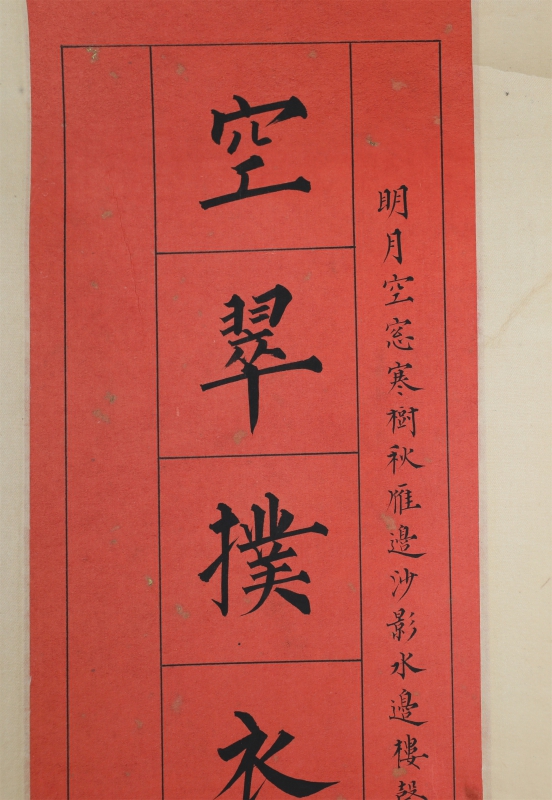 明月空窓寒樹秋雁邊沙影水邊樓
空翠撲衣